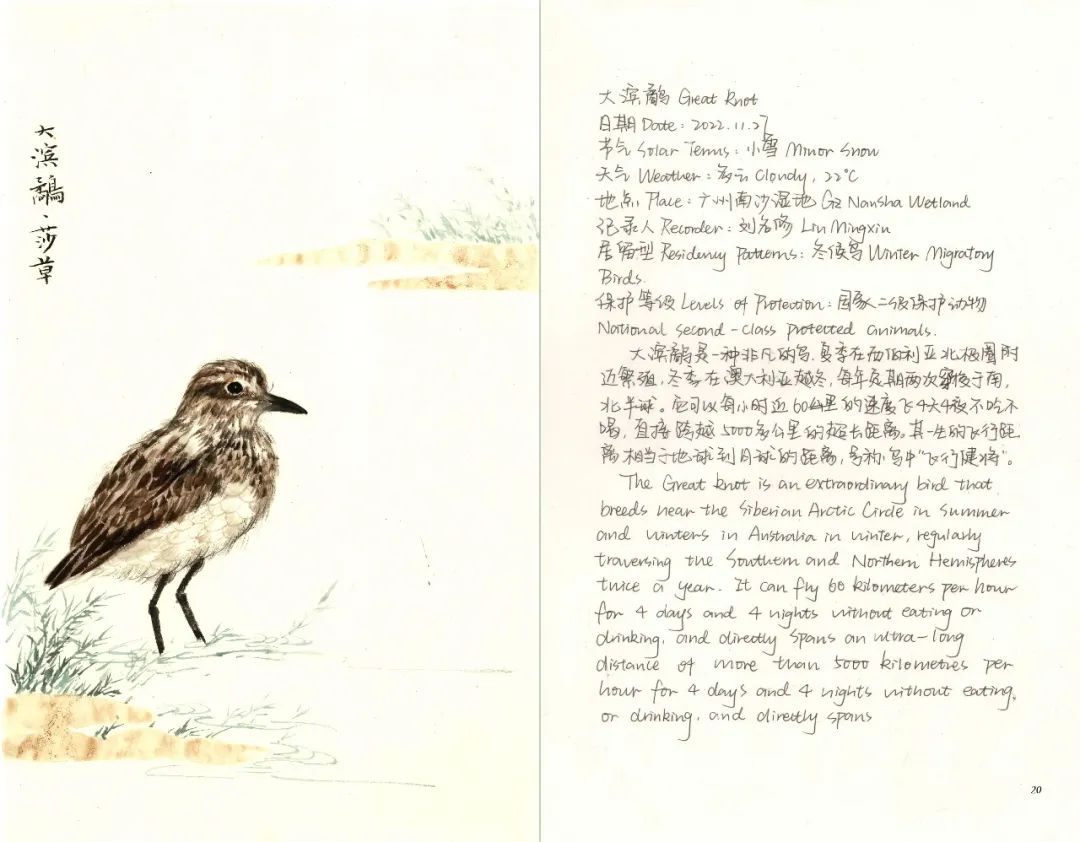 大滨鹬、莎草
大滨鹬 Great Knot
日期 Date: 2022.11.27
节气 Solar Terms: 小雪 Minor Snow
天气 Weather: 多云 Cloudy, 22°C
地点 Place: 广州南沙湿地 GZ Nansha Wetland
记录人 Recorder: 刘名修 Liu Mingxiu
居留型 Residency Patterns: 冬候鸟 Winter Migratory
Birds.
保护等级 Levels of Protection: 国家二级保护动物
National second-class protected animals.
大滨鹬是一种非凡的鸟,夏季在西伯利亚北极圈附
近繁殖,冬季在澳大利亚越冬,每年定期两次穿梭于南,
北半球。它可以每小时近60公里的速度飞4天4夜不吃不
喝,直接跨越5000多公里的超长距离。其一生的飞行距
离相当于地球到月球的距离,号称鸟中"飞行健将"。
The Great Knot is an extraordinary bird that
breeds near the Siberian Arctic Circle in summer
and winters in Australia in winter, regularly
traversing the Southern and Northern Hemispheres
twice a year. It can fly 60 kilometers per hour
for 4 days and 4 nights without eating or
drinking, and directly spans an ultra-long
distance of more than 5000 kilometres per
hour for 4 days and 4 nights without eating,
or drinking, and directly spans
20